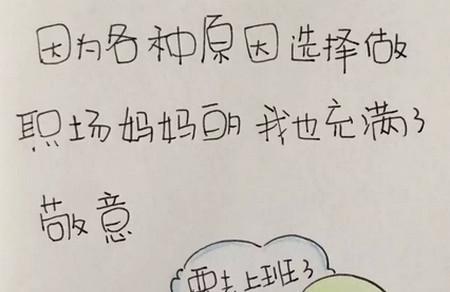 因为各种原因选择做
职场妈妈的我也充满了
敬意
要去上班了